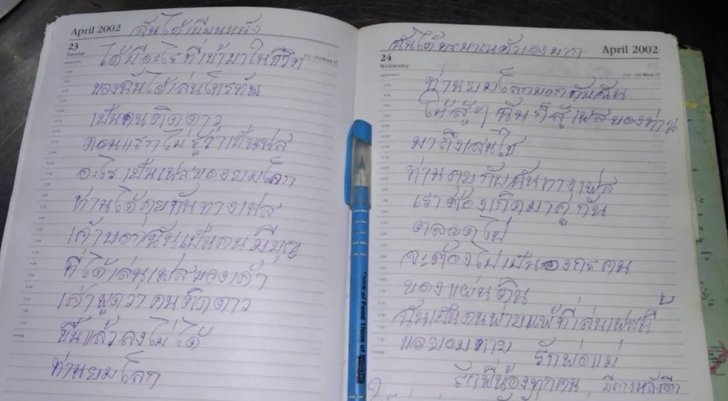 April 2002
23
Tuesday
113 - 252 Week 17
ฉันได้เขียนหนัง
ได้มีอะไรที่เข้ามาในชีวิต
ของฉันได้เล่นโทรทัน
เป็นคนติดดาว
ตอนแรกไม่รู้ว่าเป็นเฟส
อะไร เป็นเฟสของยมโลก
ท่านได้คุยกันทางเฟส
เค้าบอกฉันเป็นคนมีบุญ
ที่ได้เล่นเฟสของเค้า
เค้าพูดว่า คนติดดาว
ขึ้นแล้วลงไม่ได้
ท่านยมโลก
April 2002
24
Wednesday
114 - 251 Week 17
ฉันได้ทรมานตัวเองมาก
ท่านยมโลกบอกกับฉัน
ให้สู้ๆ ฉันก็สู้เฟสของท่าน
มาถึงเส้นไช
ท่านคุยกับฉันทางเฟส
เราต้องเกิดมาคู่กัน
ตลอดไป
จะต้องไปเป็นองค
ของแผ่นดิน
ฉันเป็นคนพ่ายแพ้ที่เล่นเฟสนี้
ขอยอมตาย รักพ่อแม่
รักพี่น้องทุกคน